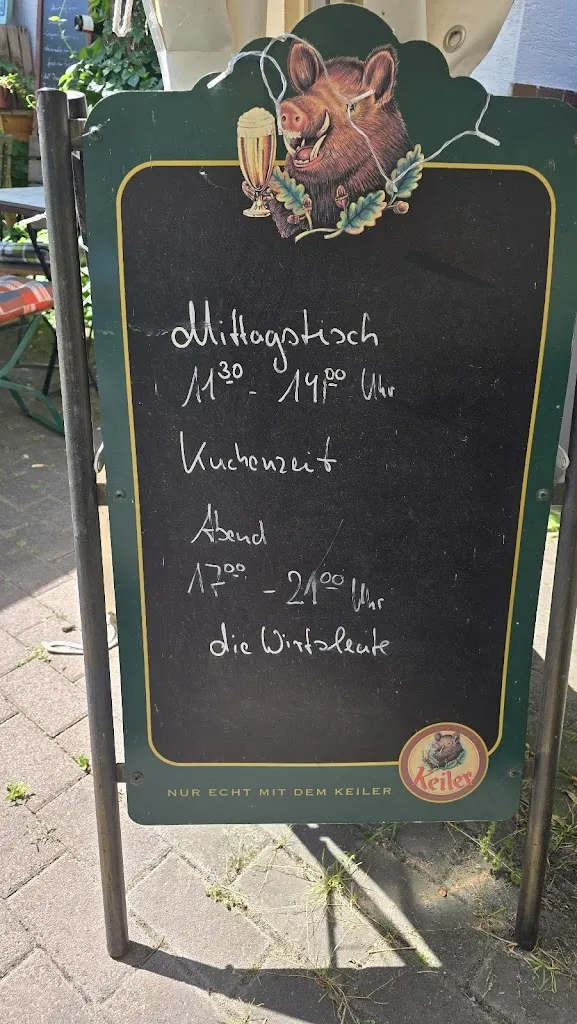 Mittagstisch
11³⁰ - 14⁰⁰ Uhr
Kuchenzeit
Abend
17⁰⁰ - 21⁰⁰ Uhr
die Wirtsleute
NUR ECHT MIT DEM KEILER
Keiler